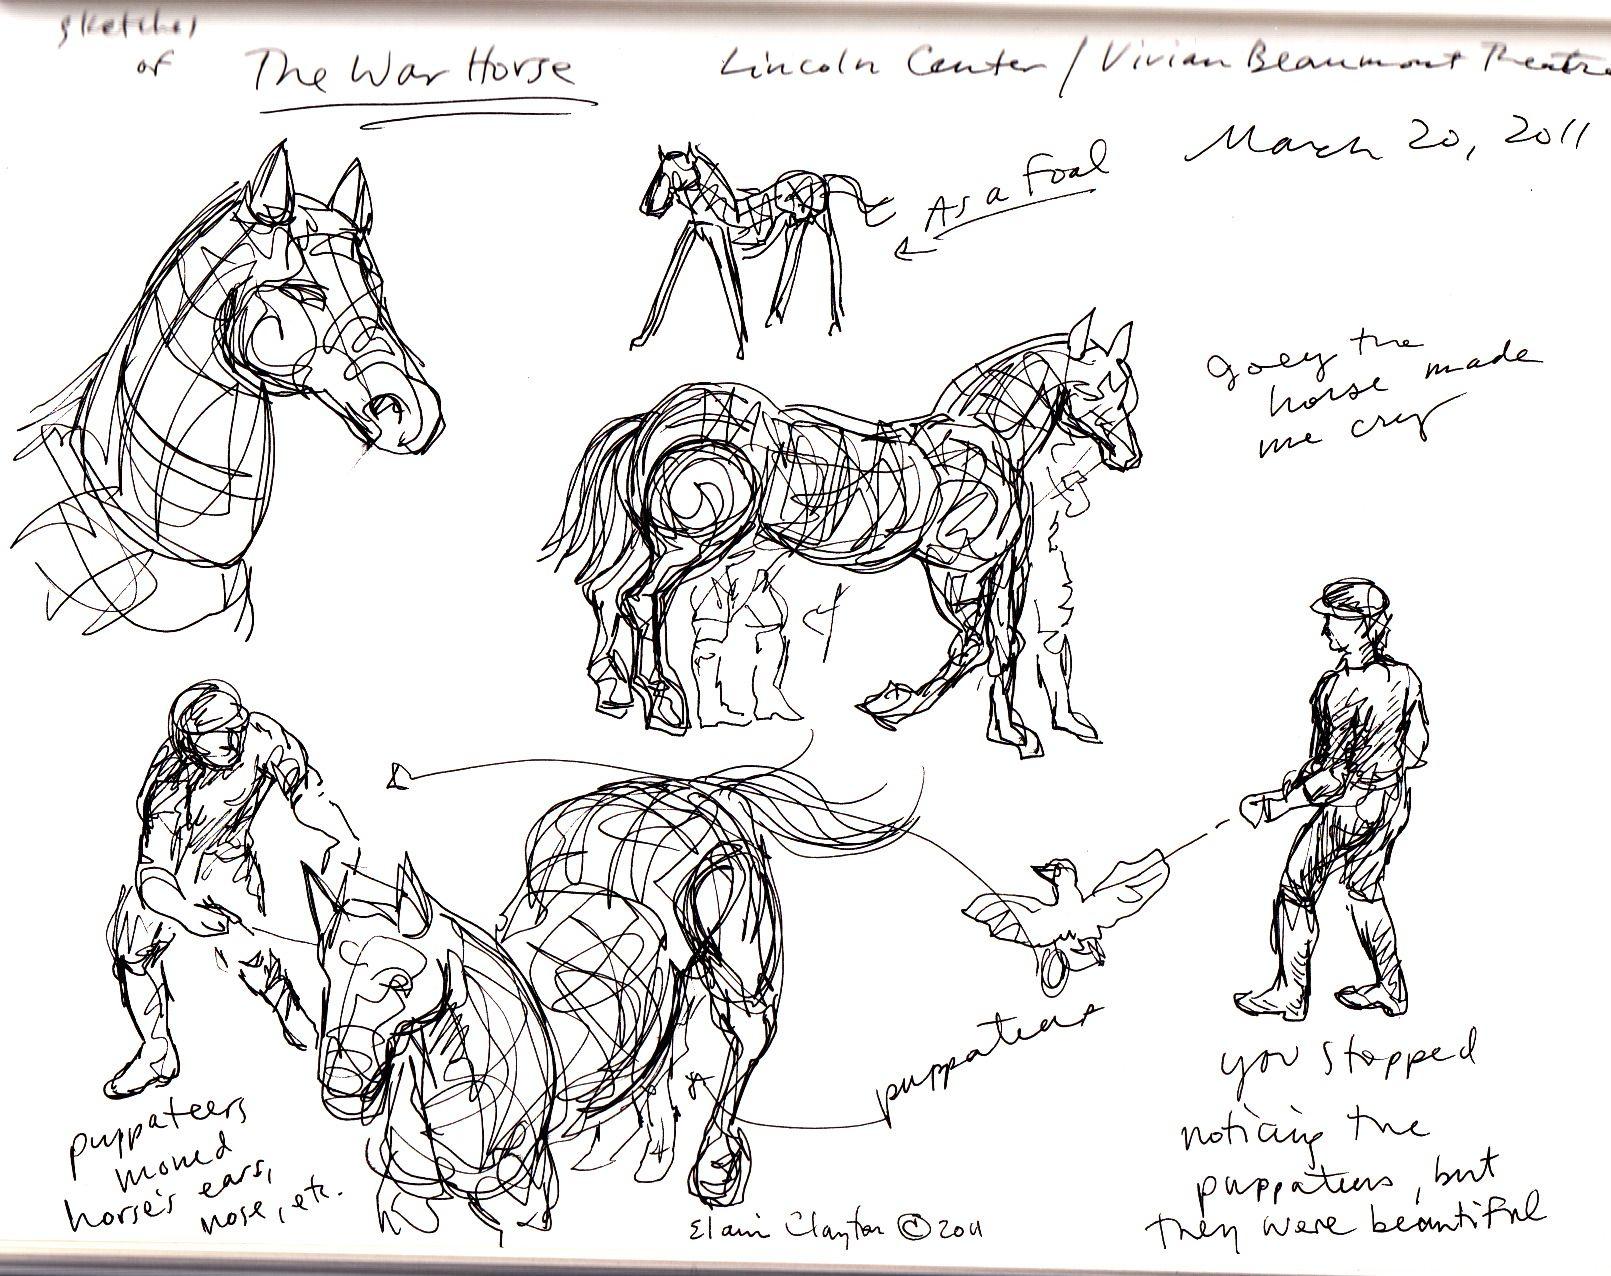 sketches
of The War Horse
Lincoln Center / Vivian Beaumont Theatre
March 20, 2011
As a Foal
Joey the
horse made
me cry
puppateers
moved
horse's ears,
nose, etc.
puppateers
you stopped
noticing the
puppateers, but
they were beautiful
Elain Clayton © 2011